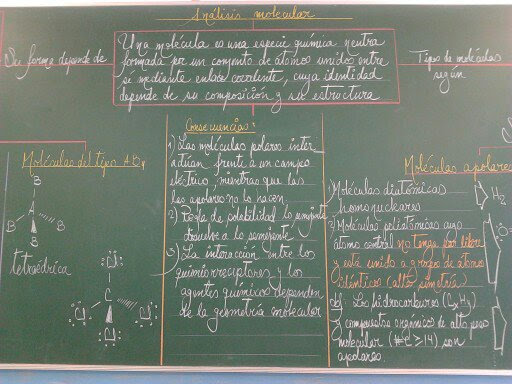 Análisis molecular
Su forma depende de
Una molécula es una especie química neutra
formada por un conjunto de átomos unidos entre
sí mediante enlace covalente, cuya identidad
depende de su composición y su estructura
Tipos de moléculas
según
Consecuencias:
1) Las moléculas polares inter
actúan frente a un campo
eléctrico, mientras que las
las apolares no lo hacen
2) Regla de solubilidad lo semejante
disuelve a lo semejante
3) La interacción entre los
quimiorreceptores y los
agentes químicos dependen
de la geometría molecular
Moléculas del tipo AB4
B
A
B B
B
tetraédrica
Cl
C
Cl Cl
Cl
Moléculas apolares
1) Moléculas diatómicas
homonucleares
2) Moléculas poliatómicas cuyo
átomo central no tenga par libre
y está unido a grupos de átomos
idénticos (alta simetría)
Los hidrocarburos (CxHy)
y compuestos orgánicos de alto peso
molecular (#C ≥ 14) son
apolares
H2
:O=